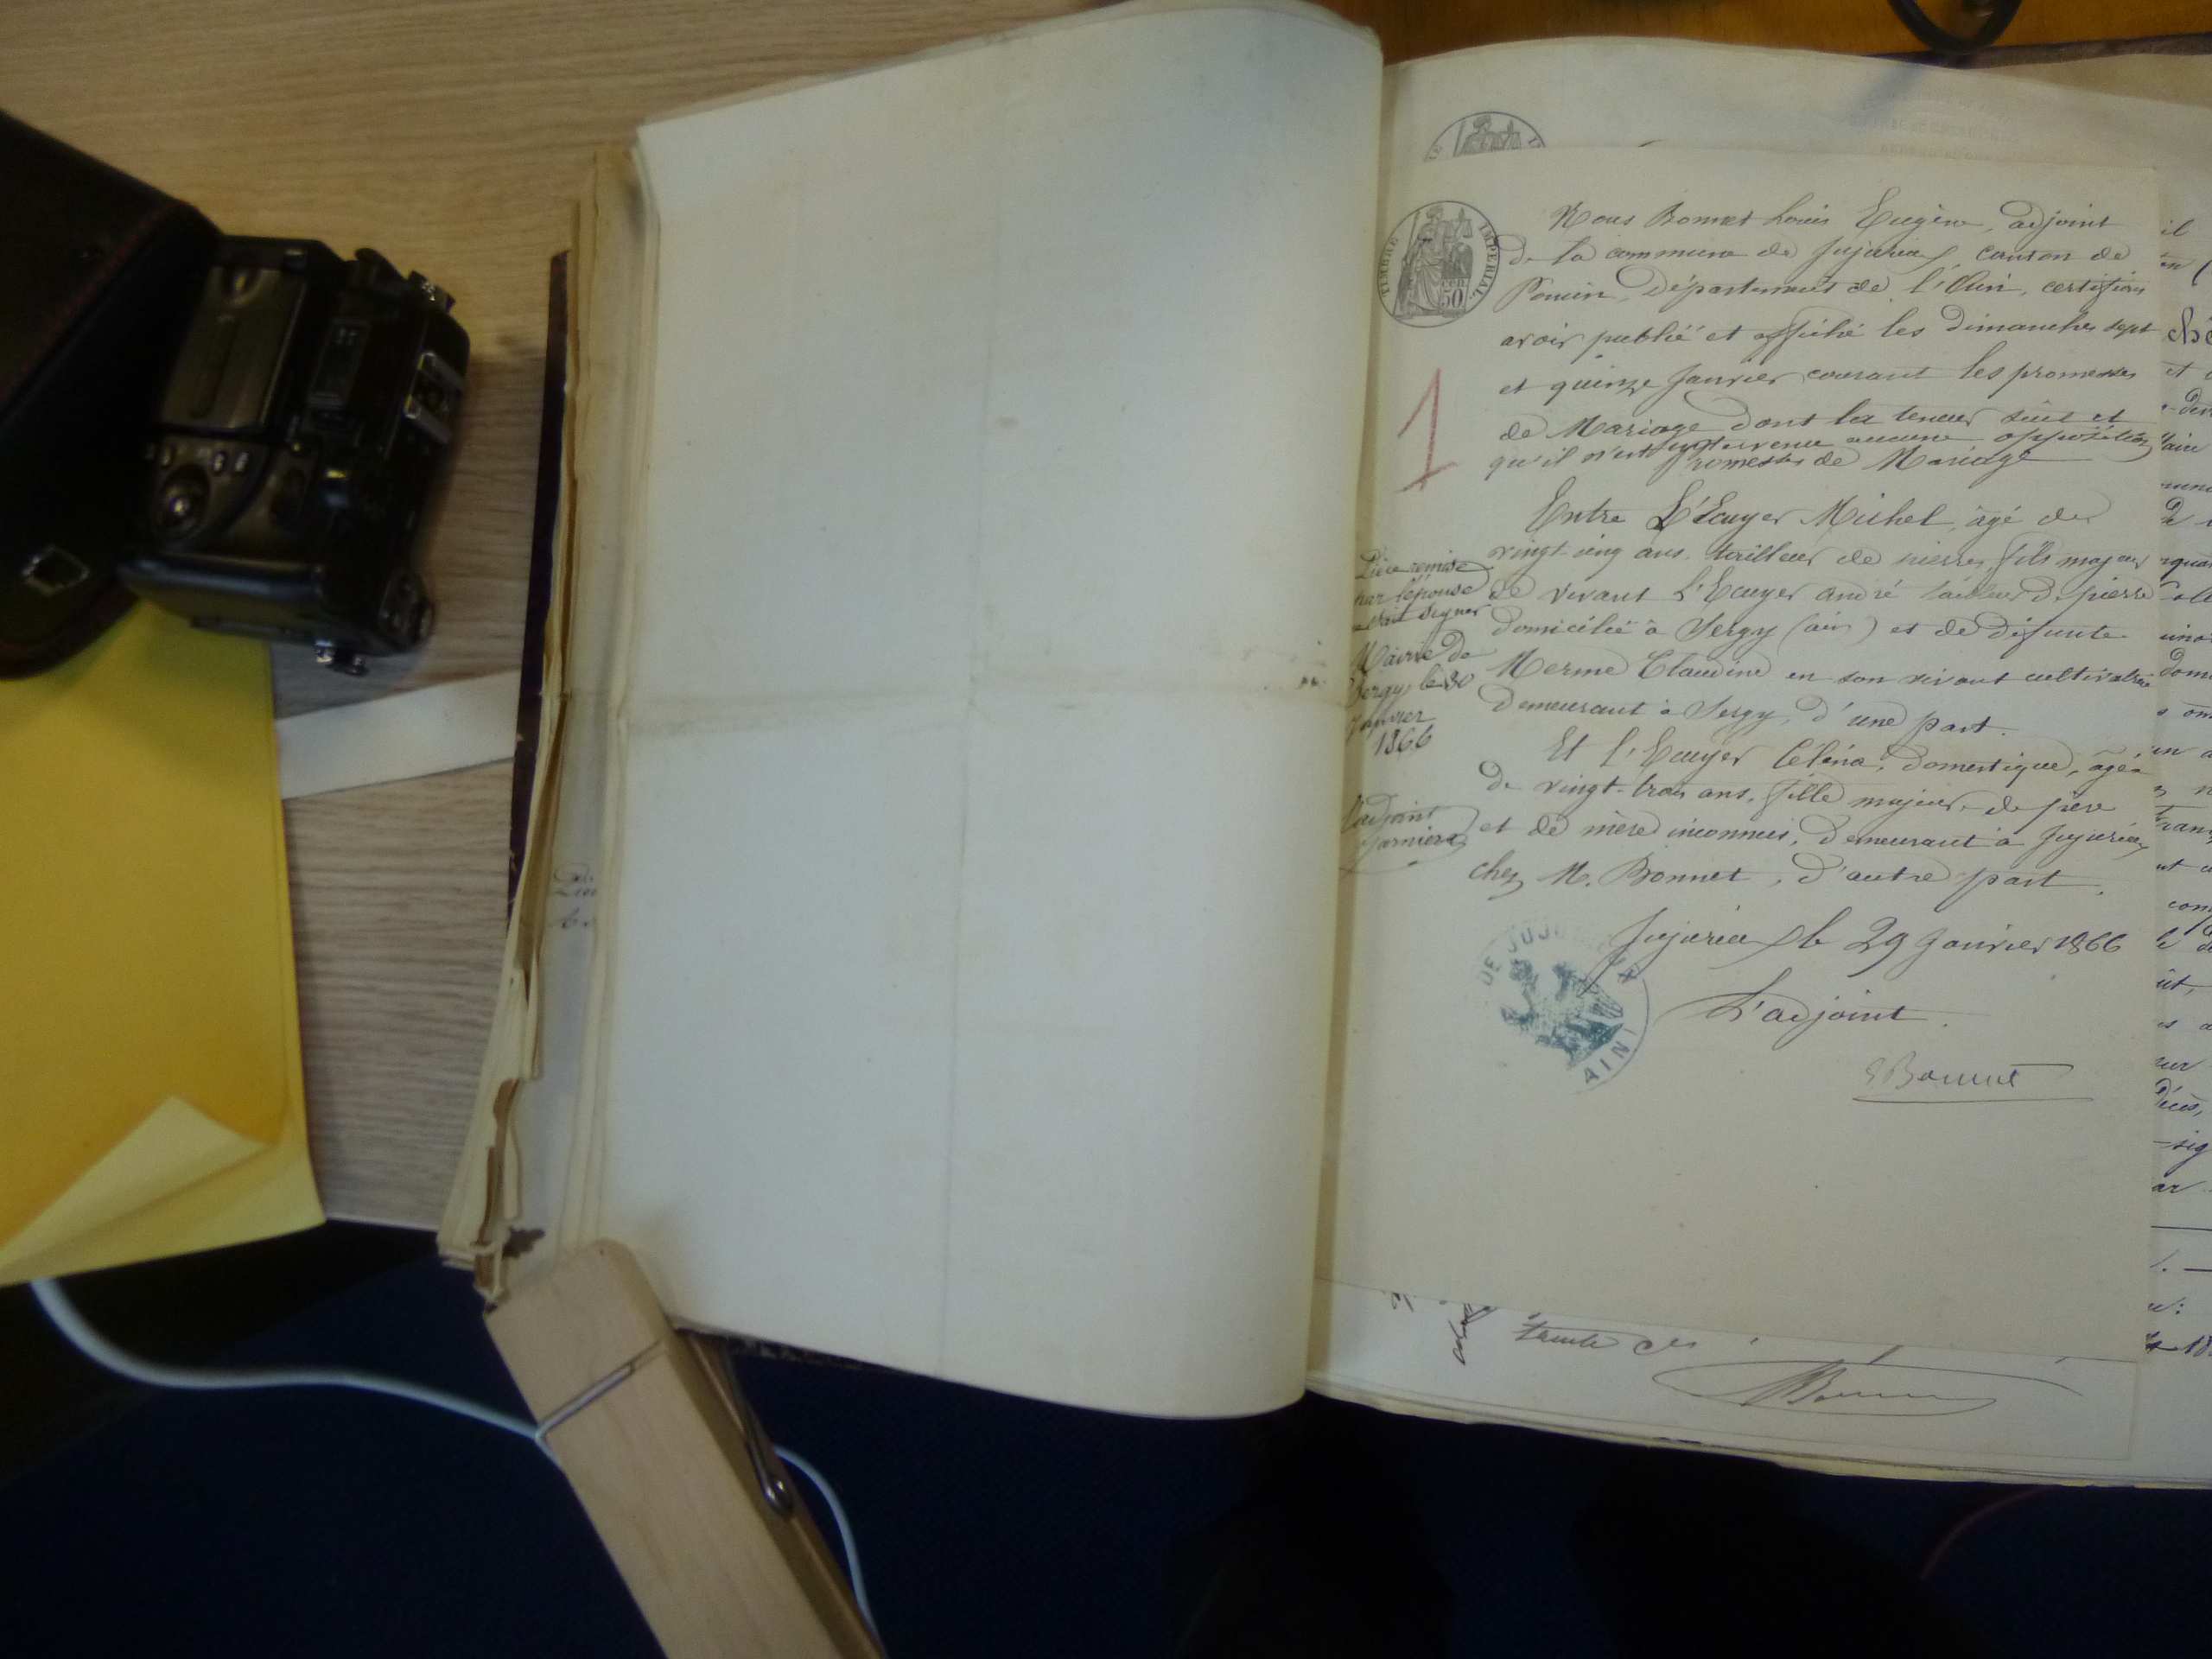 Nous Bonnet Louis Eugène, adjoint
de la commune de Jujurieux, canton de
Poncin, Département de l'Ain, certifions
avoir publié et affiché les dimanches sept
et quinze Janvier courant les promesses
de Mariage dont la teneur suit et
qu'il n'est intervenu aucune opposition
Promesses de Mariage
Entre L'Ecuyer Michel, âgé de
vingt cinq ans, tailleur de pierres, fils majeur
de vivant L'Ecuyer André tailleur de pierre
domicilié à Sergy (ain) et de défunte
Merme Claudine en son vivant cultivatrice
demeurant à Sergy, d'une part.
Et l'Ecuyer Céléna, domestique, âgée
de vingt-trois ans, fille majeure de père
et de mère inconnus, demeurant à Jujurieux
chez M. Bonnet, d'autre part.
Jujurieux le 29 Janvier 1866
L'adjoint.
EBonnet
TIMBRE IMPERIAL
50
1
Pièce remise
par l'épouse
Mairie de
Sergy, le 30
Janvier
1866
L'adjoint
DE JUJU
AIN
trente